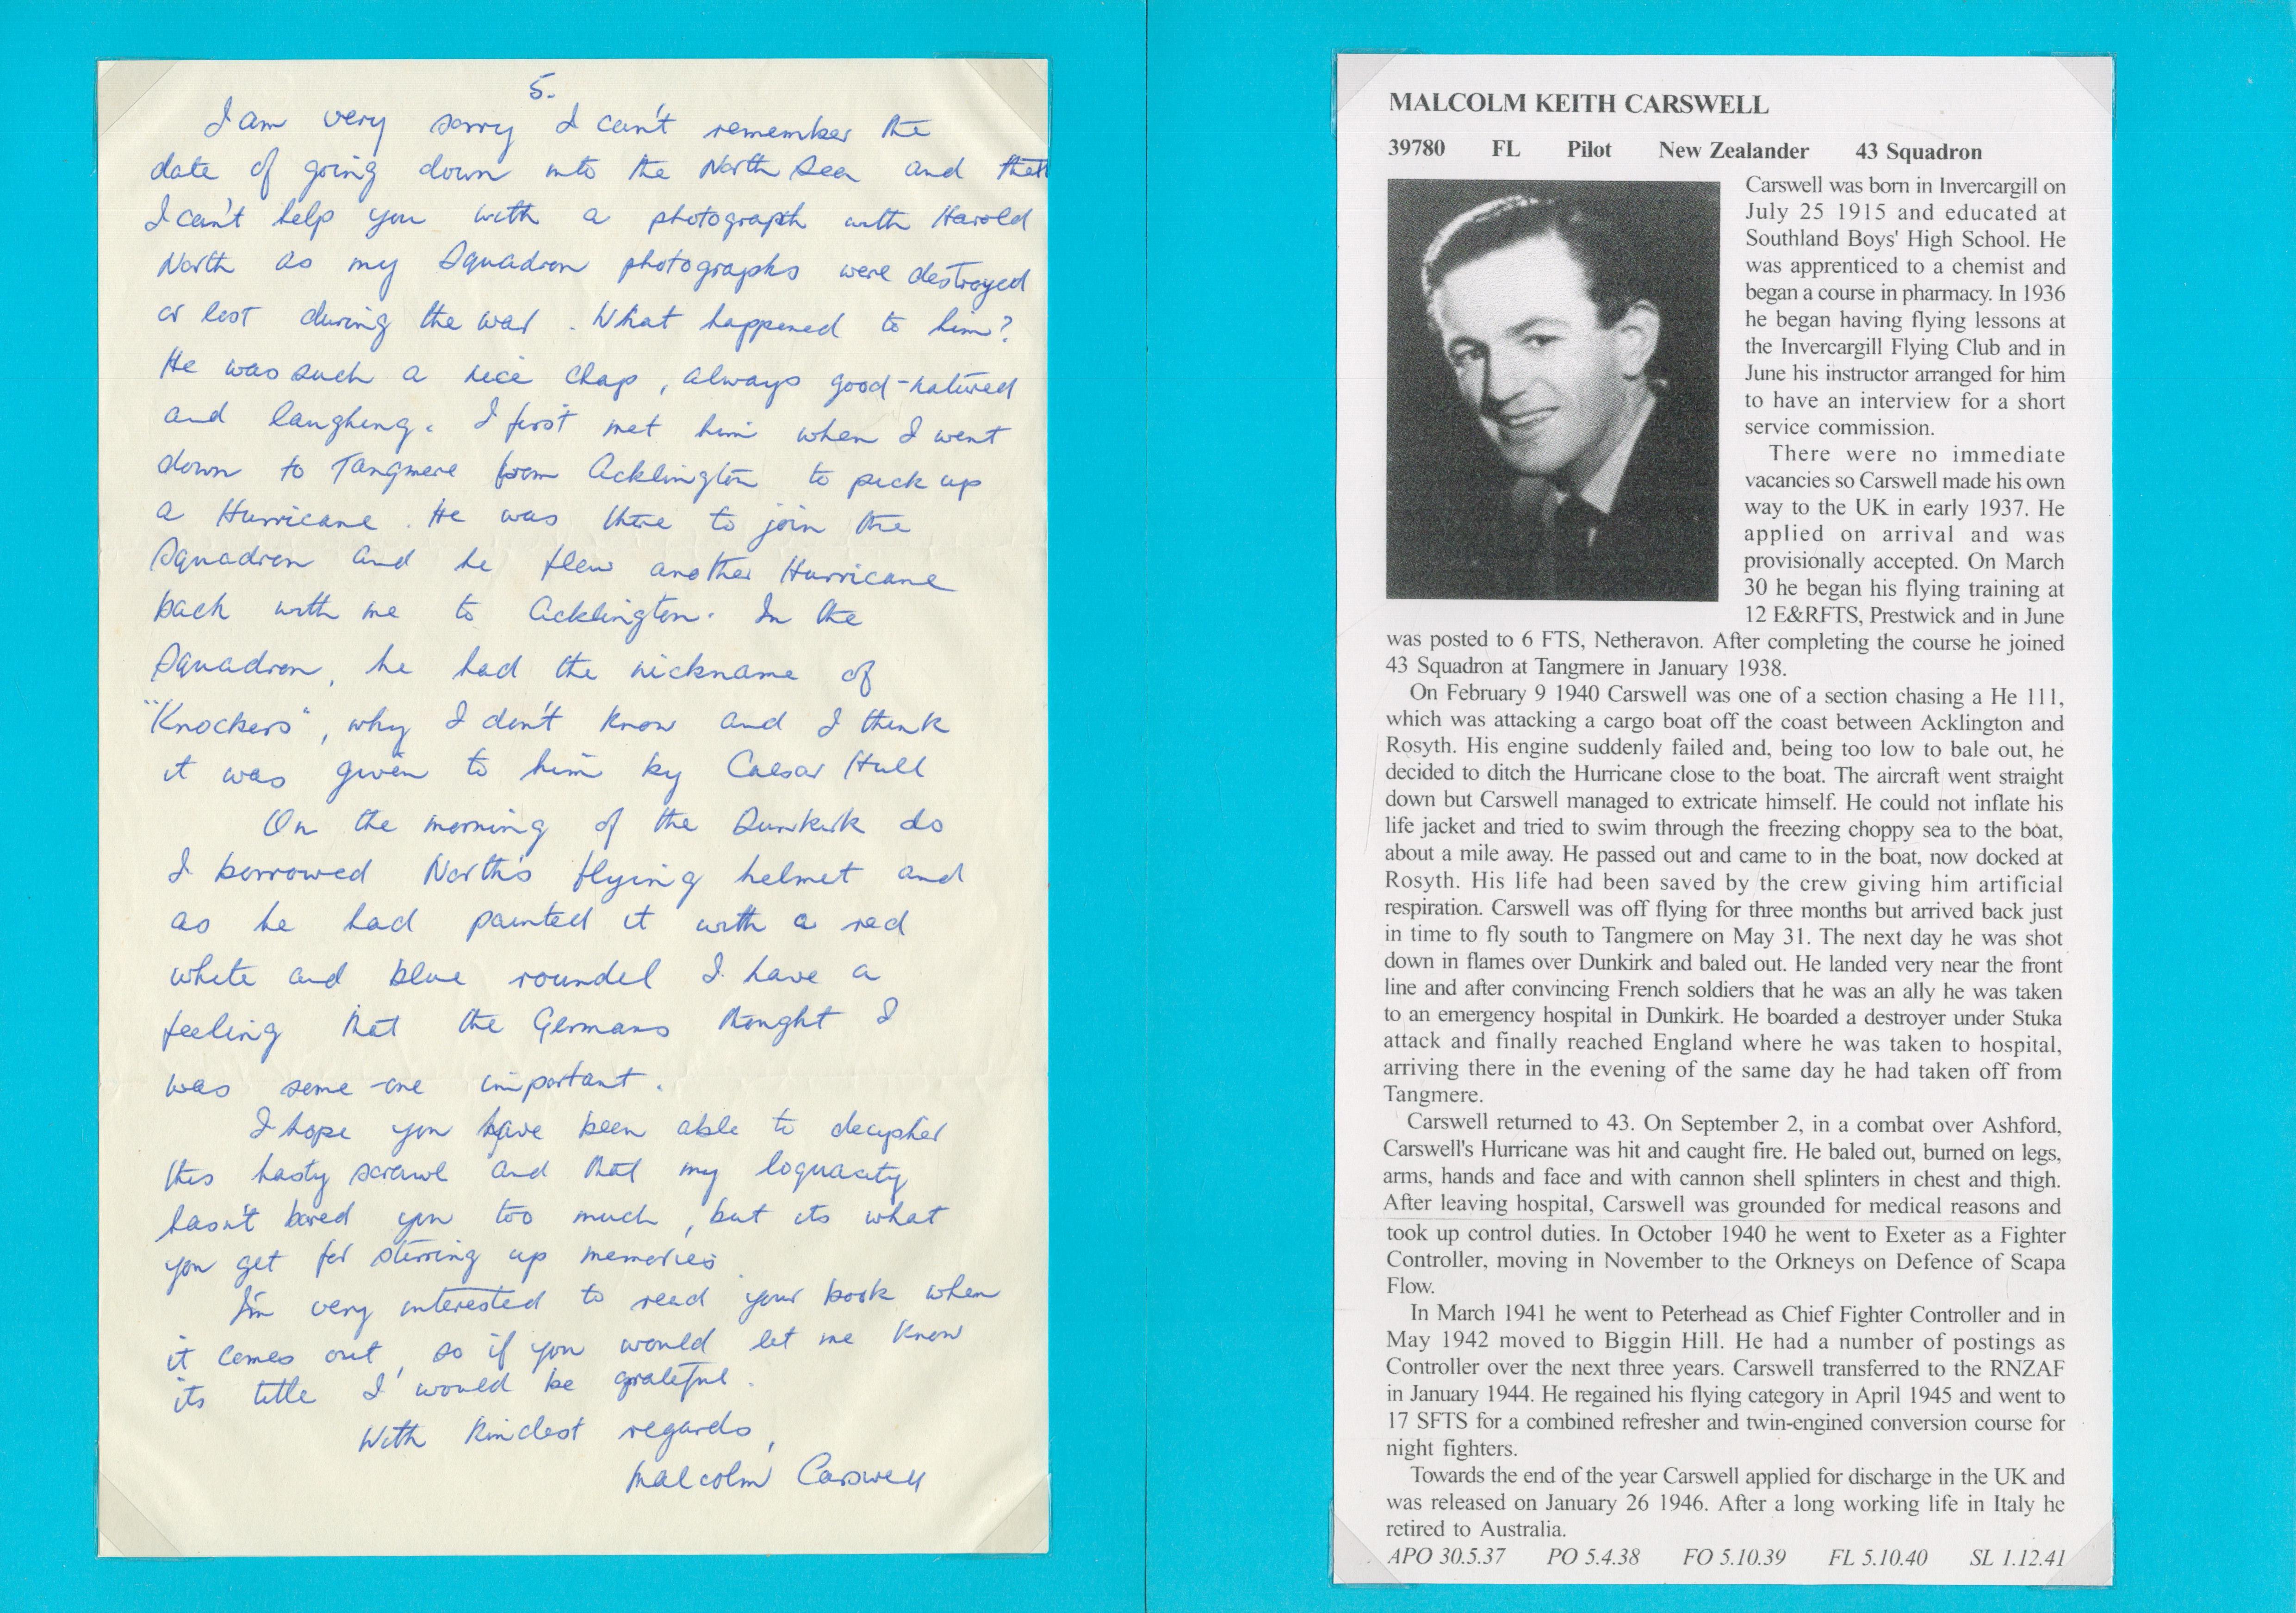 5.
I am very sorry I can't remember the
date of going down into the North Sea and that
I can't help you with a photograph with Harold
North as my Squadron photographs were destroyed
or lost during the war. What happened to him?
He was such a nice chap, always good-natured
and laughing. I first met him when I went
down to Tangmere from Acklington to pick up
a Hurricane. He was there to join the
Squadron and he flew another Hurricane
back with me to Acklington. In the
Squadron, he had the nickname of
"Knockers", why I don't know and I think
it was given to him by Caesar Hull
On the morning of the Dunkirk do
I borrowed North's flying helmet and
as he had painted it with a red
white and blue roundel I have a
feeling that the Germans thought I
was some-one important.
I hope you have been able to decipher
this hasty scrawl and that my loquacity
hasn't bored you too much, but its what
you get for stirring up memories
I'm very interested to read your book when
it comes out, so if you would let me know
its title I would be grateful.
With kindest regards,
Malcolm Carswell
MALCOLM KEITH CARSWELL
39780 FL Pilot New Zealander 43 Squadron
Carswell was born in Invercargill on
July 25 1915 and educated at
Southland Boys' High School. He
was apprenticed to a chemist and
began a course in pharmacy. In 1936
he began having flying lessons at
the Invercargill Flying Club and in
June his instructor arranged for him
to have an interview for a short
service commission.
There were no immediate
vacancies so Carswell made his own
way to the UK in early 1937. He
applied on arrival and was
provisionally accepted. On March
30 he began his flying training at
12 E&RFTS, Prestwick and in June
was posted to 6 FTS, Netheravon. After completing the course he joined
43 Squadron at Tangmere in January 1938.
On February 9 1940 Carswell was one of a section chasing a He 111,
which was attacking a cargo boat off the coast between Acklington and
Rosyth. His engine suddenly failed and, being too low to bale out, he
decided to ditch the Hurricane close to the boat. The aircraft went straight
down but Carswell managed to extricate himself. He could not inflate his
life jacket and tried to swim through the freezing choppy sea to the boat,
about a mile away. He passed out and came to in the boat, now docked at
Rosyth. His life had been saved by the crew giving him artificial
respiration. Carswell was off flying for three months but arrived back just
in time to fly south to Tangmere on May 31. The next day he was shot
down in flames over Dunkirk and baled out. He landed very near the front
line and after convincing French soldiers that he was an ally he was taken
to an emergency hospital in Dunkirk. He boarded a destroyer under Stuka
attack and finally reached England where he was taken to hospital,
arriving there in the evening of the same day he had taken off from
Tangmere.
Carswell returned to 43. On September 2, in a combat over Ashford,
Carswell's Hurricane was hit and caught fire. He baled out, burned on legs,
arms, hands and face and with cannon shell splinters in chest and thigh.
After leaving hospital, Carswell was grounded for medical reasons and
took up control duties. In October 1940 he went to Exeter as a Fighter
Controller, moving in November to the Orkneys on Defence of Scapa
Flow.
In March 1941 he went to Peterhead as Chief Fighter Controller and in
May 1942 moved to Biggin Hill. He had a number of postings as
Controller over the next three years. Carswell transferred to the RNZAF
in January 1944. He regained his flying category in April 1945 and went to
17 SFTS for a combined refresher and twin-engined conversion course for
night fighters.
Towards the end of the year Carswell applied for discharge in the UK and
was released on January 26 1946. After a long working life in Italy he
retired to Australia.
APO 30.5.37 PO 5.4.38 FO 5.10.39 FL 5.10.40 SL 1.12.41